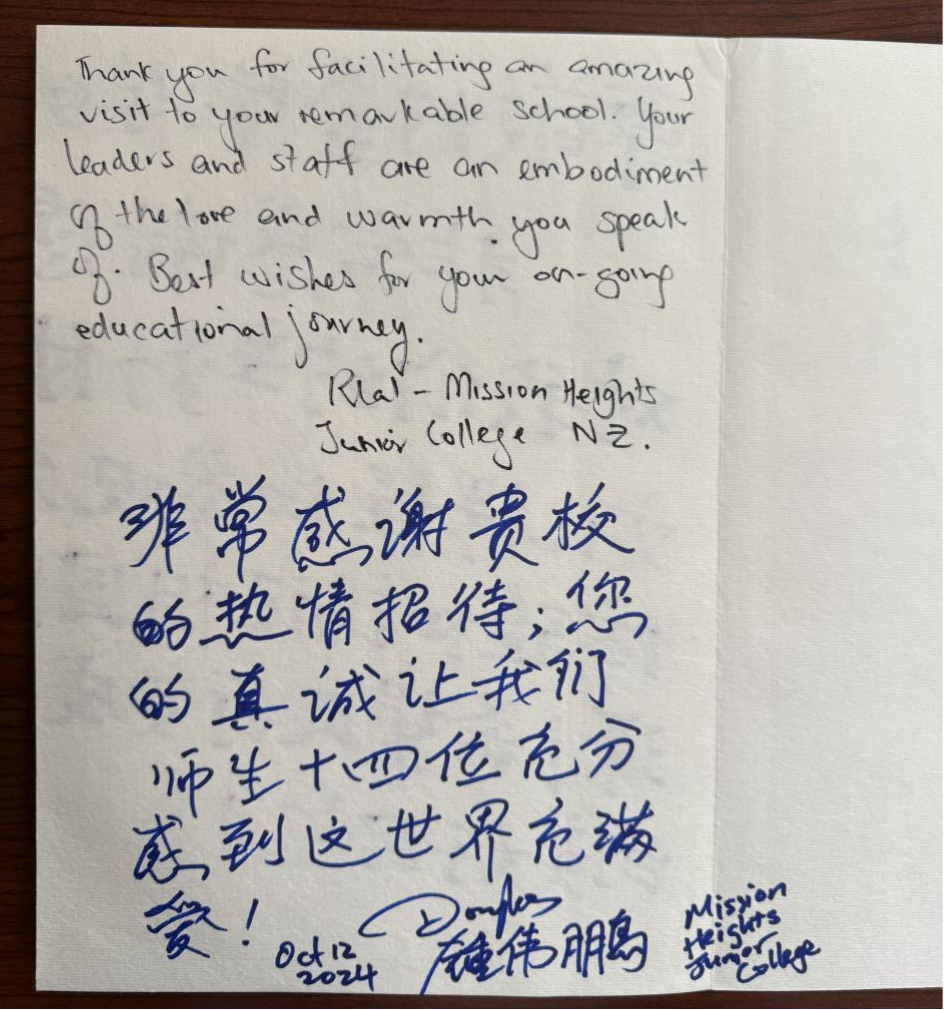 Thank you for facilitating an amazing
visit to your remarkable school. Your
leaders and staff are an embodiment
of the love and warmth you speak
of. Best wishes for your on-going
educational journey.
- Mission Heights
Junior College NZ.
非常感谢贵校
的热情招待；您
的真诚让我们
师生十四位充分
感到这世界充满
爱！
Douglas
Oct 12
2024
鍾伟鹏
Mission
Heights
Junior
College